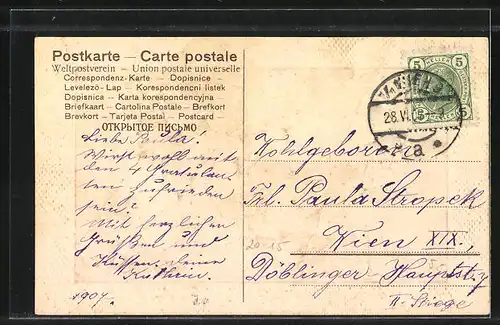 Postkarte — Carte postale
Weltpostverein — Union postale universelle
Correspondenz-Karte — Dopisnice
Levelező-Lap — Korespondencni listek
Dopisnica — Karta korespondencyjna
Briefkaart — Cartolina Postale — Brefkort
Brevkort — Tarjeta Postal — Postcard —
ОТКРЫТОЕ ПИСЬМО
Liebe Paula!
Wirst wohl mit
den 4 Gratulan-
ten zufrieden
sein?
Mit herzlichen
Grüßen und
Küssen deine
Kathrin.
1907.
5 5
5 5
WIEN
28.VI.
Wohlgeboren
Frl. Paula Stropek
Wien XIX.,
Döblinger Hauptstr.
II. Stiege
20-15